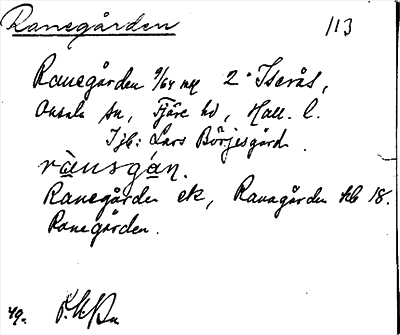 Ranegården
113
Ranegården 9/64 mtl 2° Iserås,
Onsala sn, Fjäre hd, Hall. l.
Ijb: Lars Börjesgård.
rànsgán.
Ranegården ek, Ranagården kb 18.
Ranegården.
49.